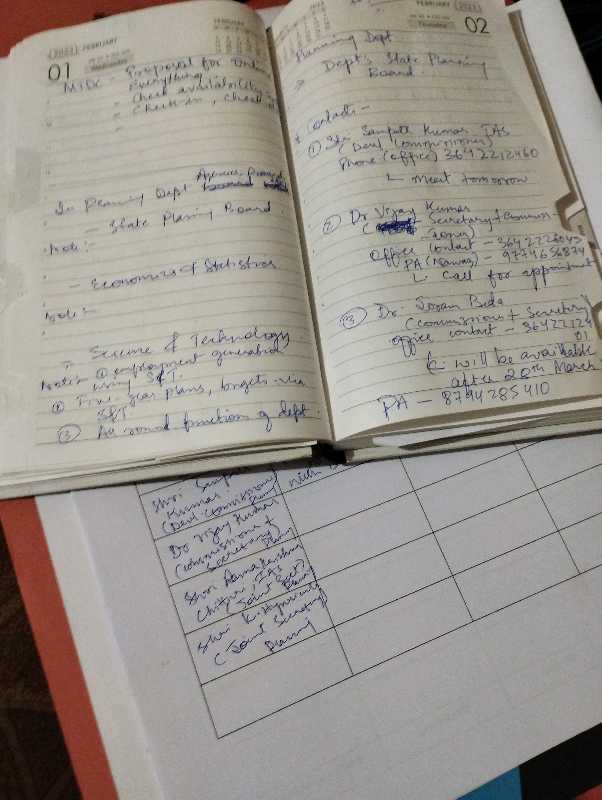 2023 FEBRUARY
01
Wednesday
FEBRUARY
MIDC - Proposal for Online
Everything
- Check availability
- Check-in, Check
In Planning Dept
- State Planning Board.
Note:-
- Economics & Statistics
Note:-
- Science & Technology
Note:- employment generation
using S&T.
② Five-year plans, targets
S&T
③ As usual functions of dept.
FEBRUARY 2023
02
Thursday
Planning Dept
Dept's State Planning
Board.
Contacts -
① Shri Sampath Kumar IAS
(Devl Commissioner)
Phone (office) 3642212460
Meet tomorrow
② Dr Vijay Kumar
Secretary + Commiss-
ioner)
Office Contact -
PA (Nawaz) - 9774656874
Call for appointment
③ Dr. Joram Beda
(Commissioner + Secretary
office contact - 36422124
01
will be available
after 20th March
PA - 8794285410
Shri
Kumar
(Devl. Commissioner
Dr Vijay Kumar
(Commissioner +
Secretary)
Planning
Shri Rama Krishna
Chitturi, IAS
(Joint Sect)
Planning
Shri K. Hynniewta
(Joint Secretary)
Planning